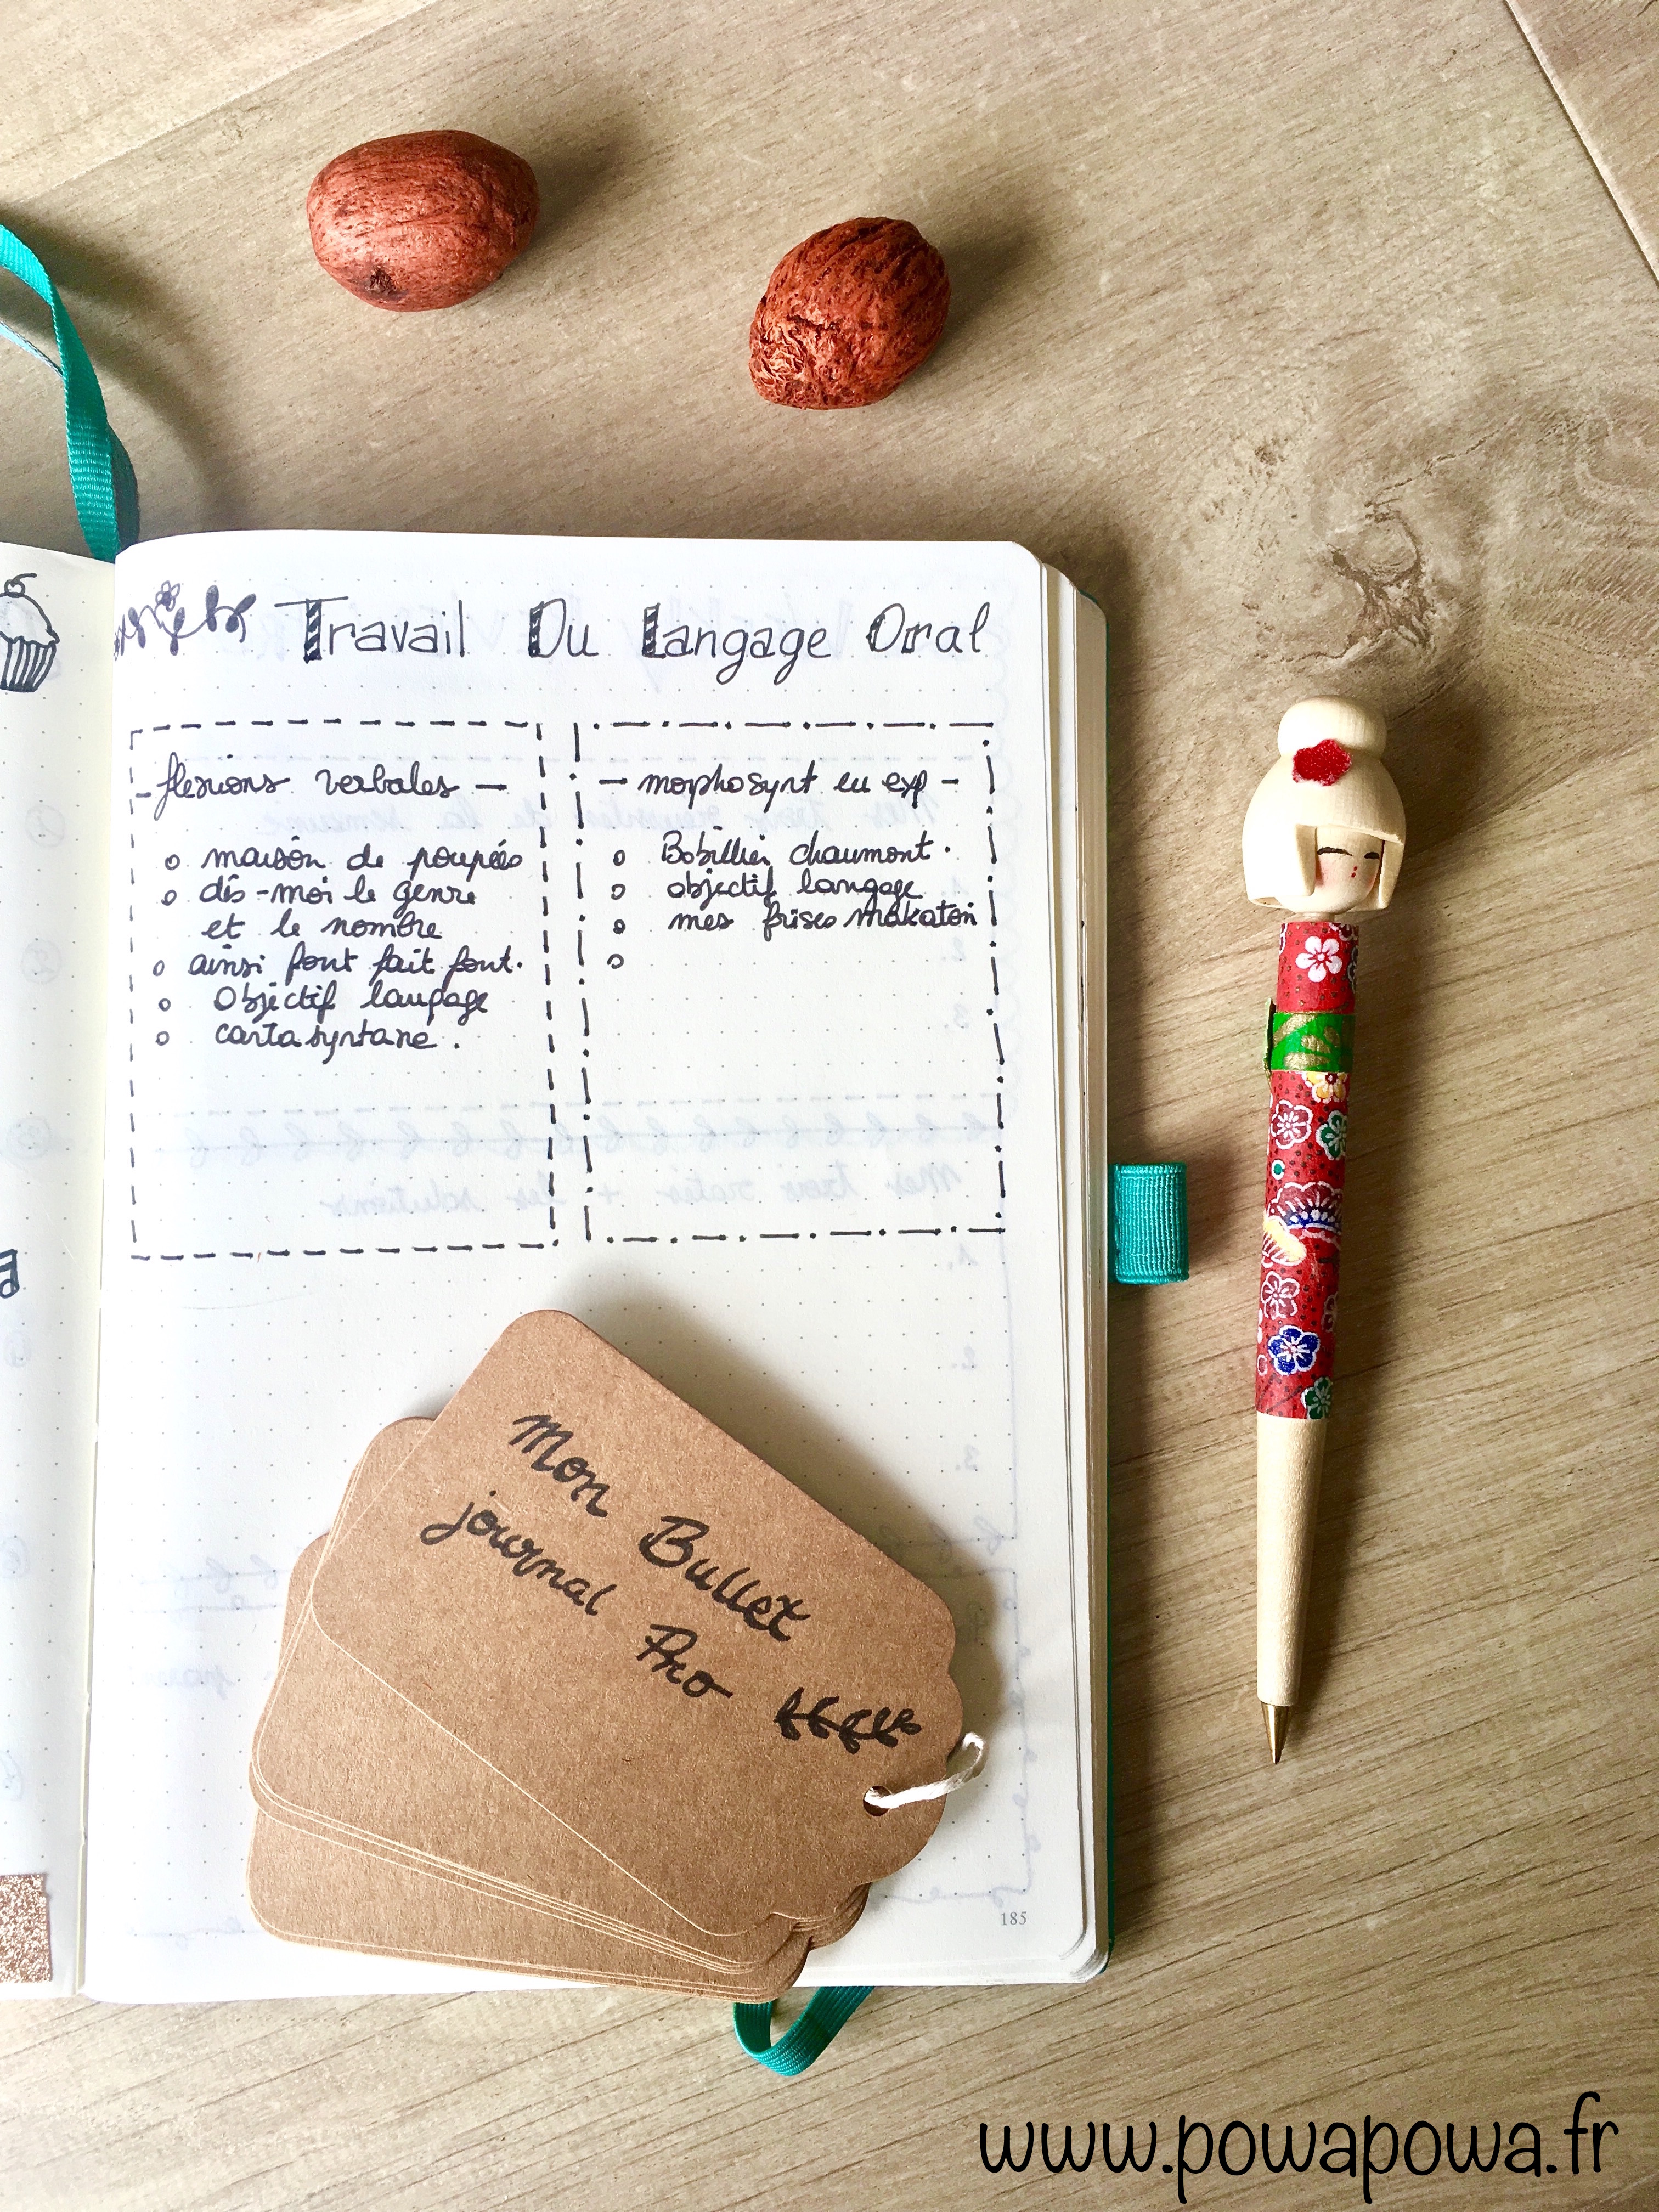 Travail Du Langage Oral
- flexions verbales -
maison de poupées
dis-moi le genre
et le nombre
ainsi font fait font.
Objectif langage
carta syntaxe.
- morphosynt en exp -
Bobillier chaumont.
objectif langage
mes frises makaton
Mon Bullet
journal Pro
185
www.powapowa.fr